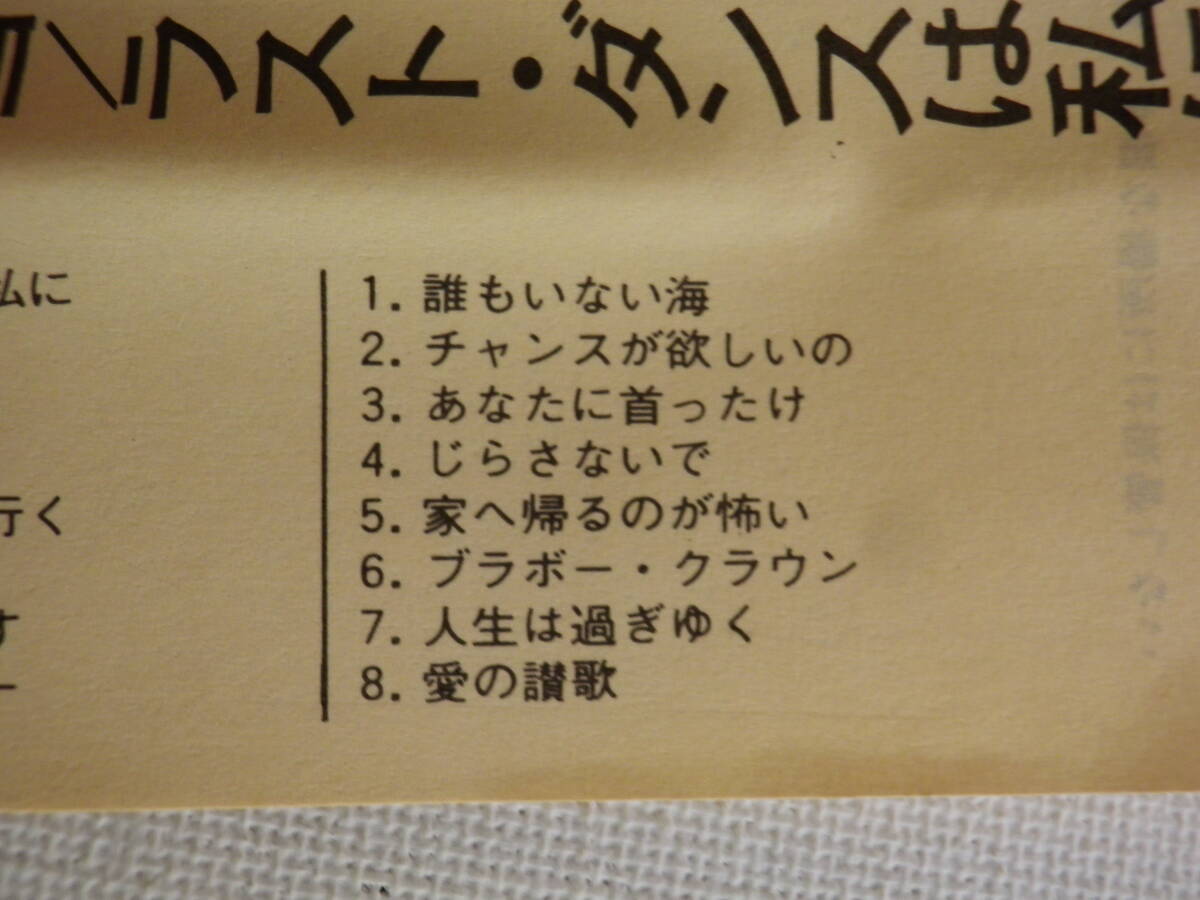 ラスト・ダンスは私
私に
行く
す
1. 誰もいない海
2. チャンスが欲しいの
3. あなたに首ったけ
4. じらさないで
5. 家へ帰るのが怖い
6. ブラボー・クラウン
7. 人生は過ぎゆく
8. 愛の讃歌